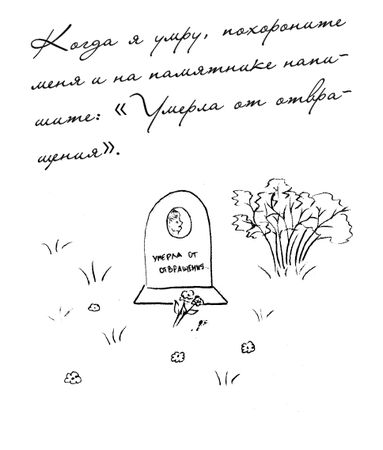 Когда я умру, похороните
меня и на памятнике напи-
шите: «Умерла от отвра-
щения».
УМЕРЛА ОТ
ОТВРАЩЕНИЯ